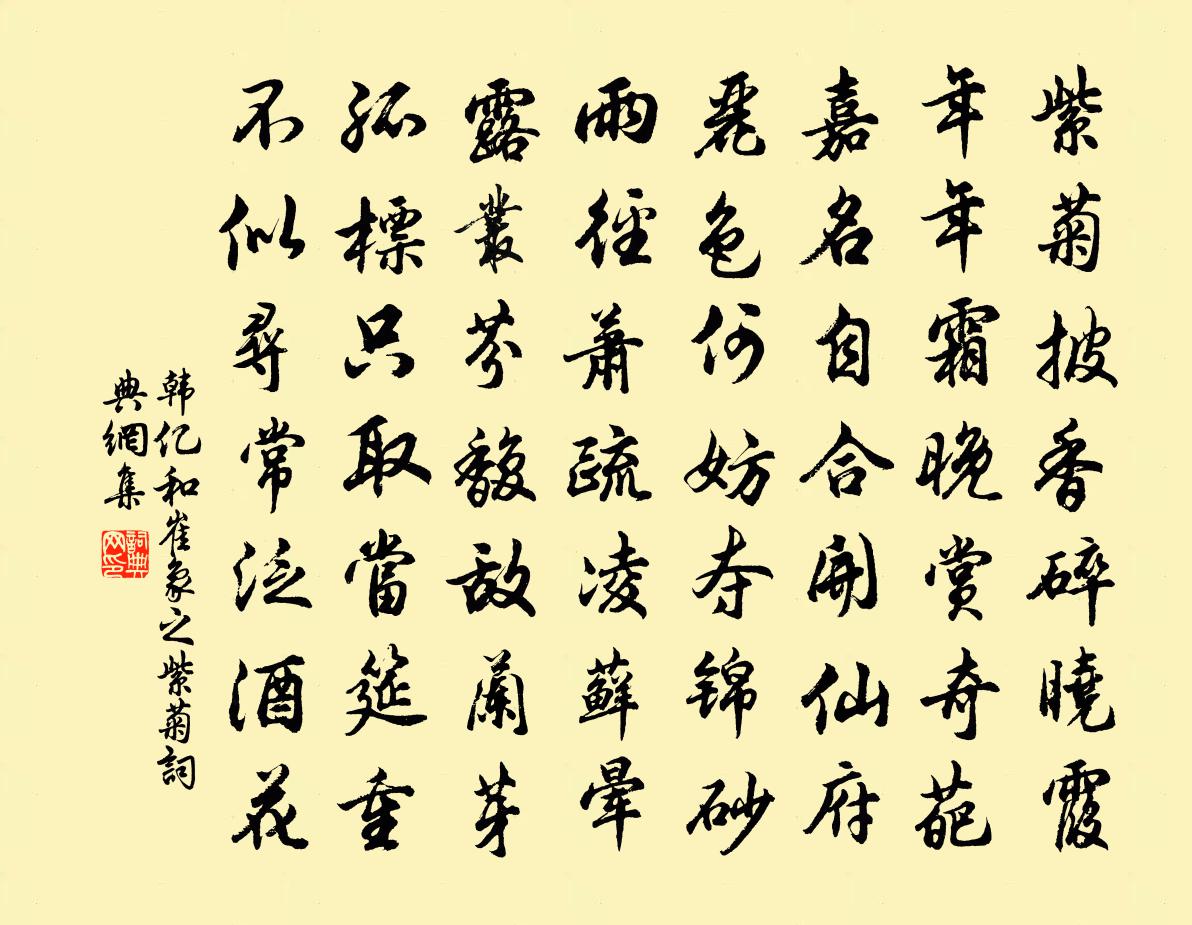 紫菊披香碎曉霞
年年霜晚賞奇葩
嘉名自合開仙府
麗色何妨夺锦砂
雨徑蕭疏凌蘚暈
露叢芬馥敌蘭芽
孤標只取當筵重
不似尋常泛酒花
韩亿和崔象之紫菊詞
典網集
詞典网印